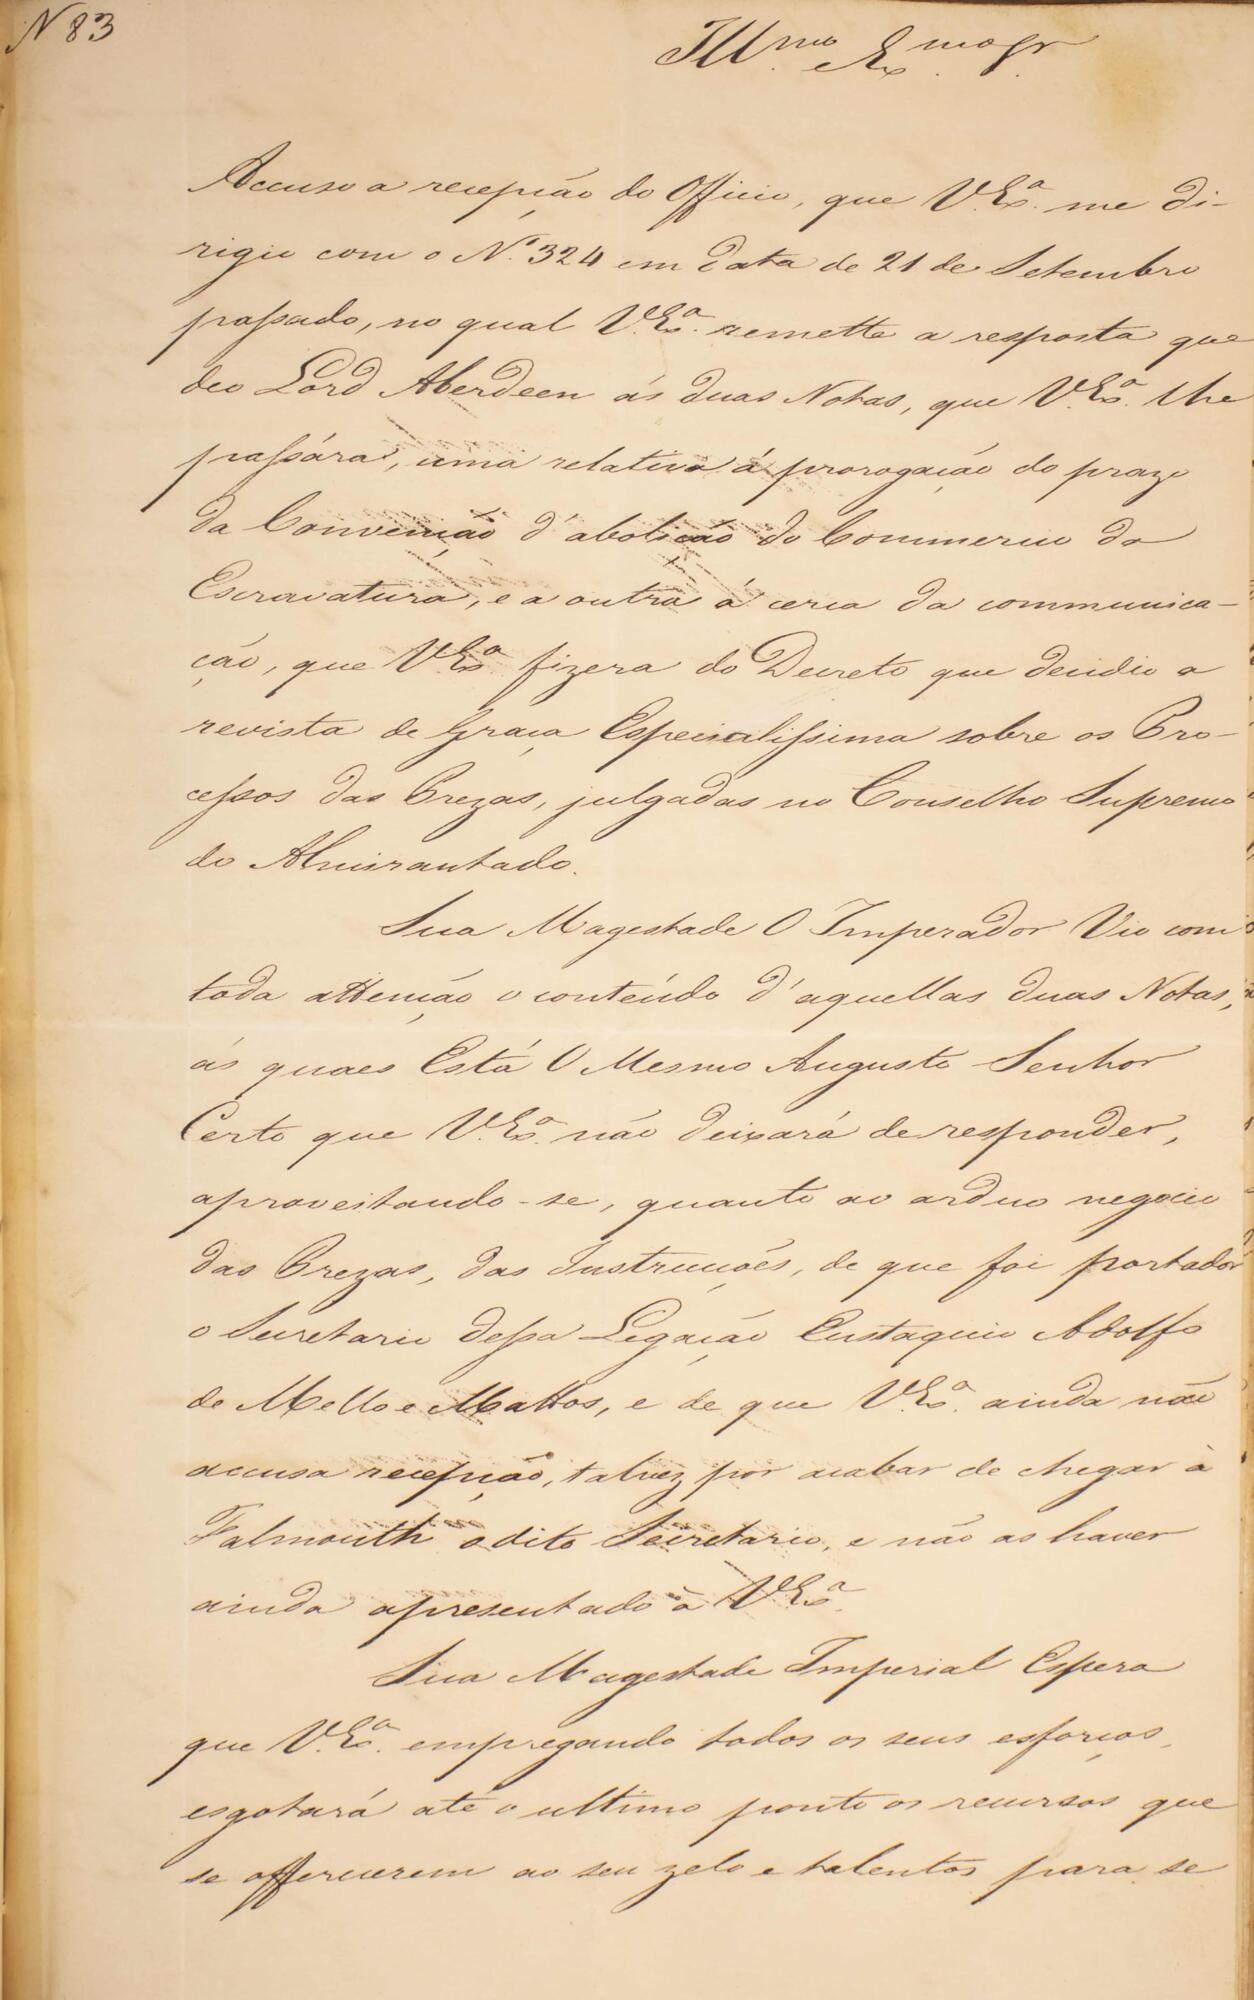 N 83
Ill.mo e Ex.mo Sr.
Accuso a recepção do Officio, que V. Ex.a me di-
rigio com o N.o 324 em data de 21 de Setembro
passado, no qual V. Ex.a remette a resposta que
deo Lord Aberdeen ás duas Notas, que V. Ex.a lhe
passára, uma relativa á prorogação do prazo
da Convenção d'abolição do Commercio da
Escravatura, e a outra á cerca da communica-
ção, que V. Ex.a fizera do Decreto que decidio a
revista de Graça Especialissima sobre os Pro-
cessos das Prezas, julgadas no Conselho Supremo
do Almirantado.
Sua Magestade O Imperador Vio com
toda attenção o conteúdo d'aquellas duas Notas,
ás quaes Está O Mesmo Augusto Senhor
Certo que V. Ex.a não deixará de responder,
aproveitando-se, quanto ao arduo negocio
das Prezas, das Instrucções, de que foi portador
o Secretario dessa Legação Eustaquio Adolfo
de Mello e Mattos, e de que V. Ex.a ainda não
accusa recepção, talvez por acabar de chegar à
Falmouth o dito Secretario, e não as haver
ainda apresentado à V. Ex.a
Sua Magestade Imperial Espera
que V. Ex.a empregando todos os seus esforços,
esgotará até o ultimo ponto os recursos que
se offerecerem ao seu zelo e talentos para se